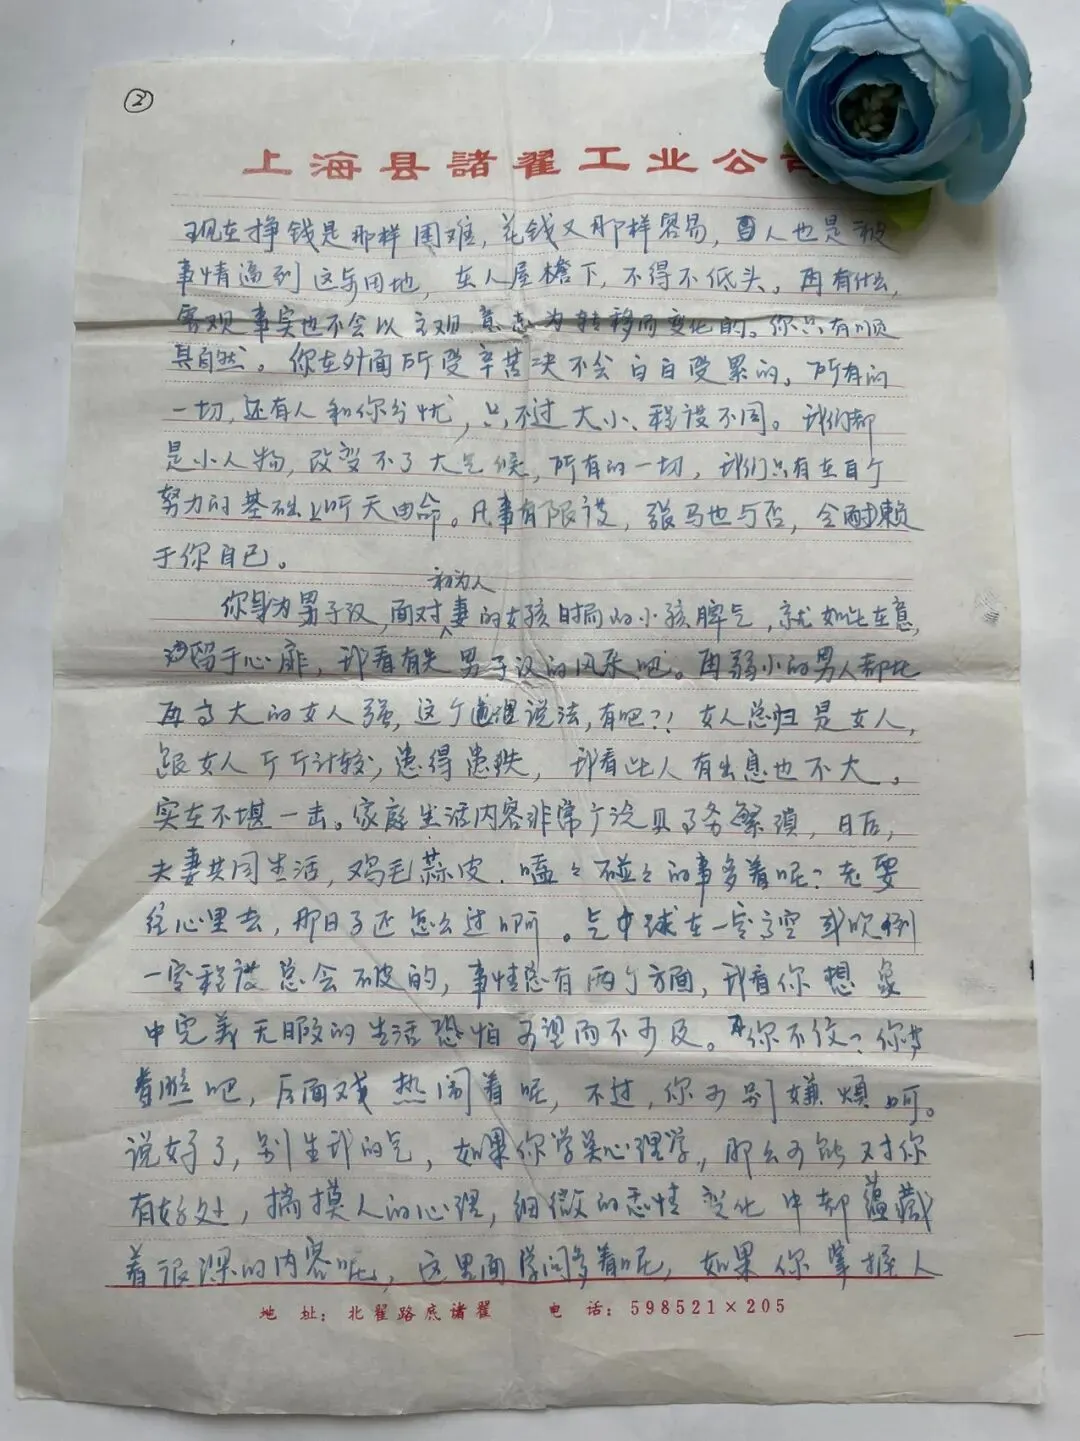 ②
上海县諸翟工业公
现在挣钱是那样困难，花钱又那样容易，男人也是被
事情逼到这步田地，在人屋檐下，不得不低头。再有什么，
客观事实也不会以主观意志为转移而变化的。你只有顺
其自然。你在外面所受辛苦决不会白白受累的。所有的
一切，还有人和你分忧，只不过大小、程度不同。我们都
是小人物，改变不了大气候，所有的一切，我们只有在自个
努力的基础上听天由命。凡事有限度，张马也与否，全耐赖
于你自己。
初为人
你身为男子汉，面对妻的女孩时局的小孩脾气，就如此在意，
留于心扉，我看有失男子汉的风采吧。再弱小的男人都比
再高大的女人强，这个道理说法，有吧？！女人总归是女人，
跟女人斤斤计较，患得患失，我看此人有出息也不大。
实在不堪一击。家庭生活内容非常广泛且事务繁琐，日后，
夫妻共同生活，鸡毛蒜皮．嗑々碰々的事多着呢？老要
往心里去，那日子还怎么过啊。气球在一定高空或吹到
一定程度总会破的，事情总有两个方面，我看你想象
中完美无暇的生活恐怕可望而不可及。你不信？你
着瞧吧，后面戏热闹着呢，不过，你可别嫌烦啊。
说好了，别生我的气，如果你学关心理学，那么可能对你
有好处，揣摸人的心理，细微的表情变化中都蕴藏
着很深的内容呢，这里面学问多着呢，如果你掌握人
地 址：北翟路底诸翟 电 话：598521×205